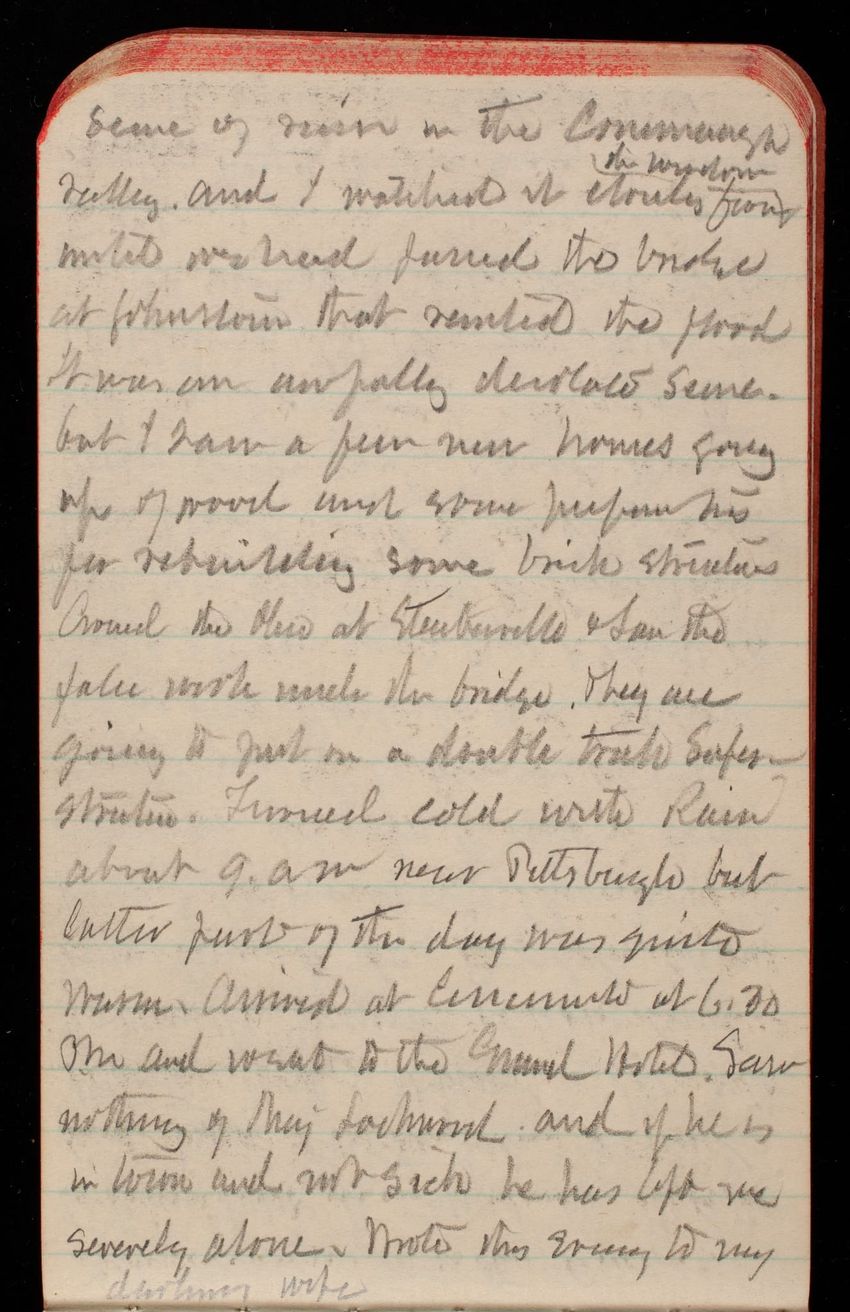 Scene of ruin in the Conemaugh
the window
Valley. and I watched it closely from
until we had passed the bridge
at Johnstown that resisted the flood
It was an awfully desolate scene.
but I saw a few new homes going
up of wood and some preparations
for rebuilding some brick structures
Crossed the Ohio at Steubenville & saw the
false work under the bridge. They are
going to put on a double track Super-
structure. Turned cold with Rain
about 9. am near Pittsburgh but
latter part of the day was quite
warm. Arrived at Cincinnati at 6.30
PM and went to the Grand Hotel. Saw
nothing of Maj Lockwood. and if he is
in town and not sick he has left me
severely alone. Wrote this evening to my
darling wife